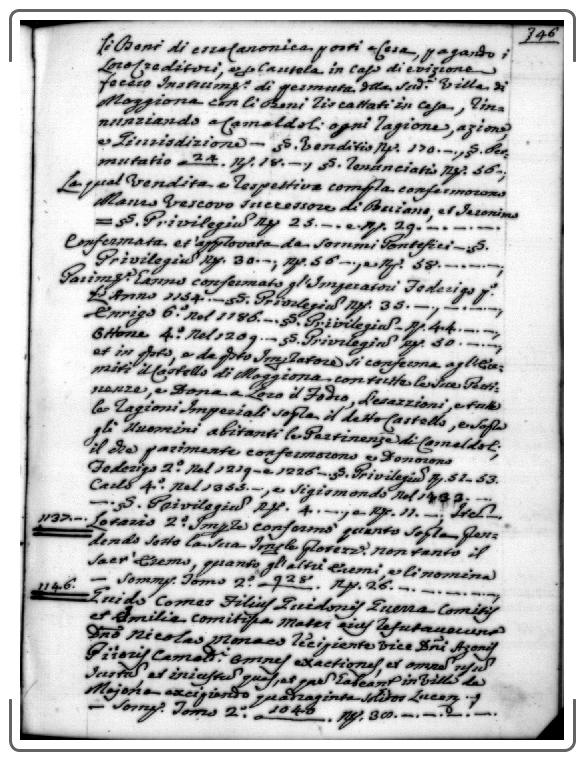 346
li Beni di essa Canonica posti a Cesa, pagando i
Loro Creditori, e a Cautela in caso di evizione
fecero Instrum.º di permuta della Sud.ª Villa di
Moggiona con li Beni riscattati in Cesa, rin-
nunziando a Camaldoli ogni ragione, azione,
e Giurisdizione — §. Venditio Nº. 170. —, §. Per-
mutatio a 24. Nº. 18. —; §. renunciatio Nº. 56 —;
La qual Vendita e respettiva compra confermorono
Mauro Vescovo successore di Buiano, et Jeronimo
= §. Privilegium Nº 25. — e Nº. 29.
Confermata et approvata da Sommi Pontefici — §.
Privilegium Nº. 30 —; Nº. 56 —, e Nº. 58.
Parim.te Hanno confermato gl'Imperatori Federigo pº.
L'Anno 1154. — §. Privilegium Nº. 35. —,
Enrigo 6.º Nel 1186. — §. Privilegium — Nº. 44.
Ottone 4.º Nel 1209. — §. Privilegium Nº. 50.
et in qsto, e da qsto Impratore si conferma agl'Ere-
miti il Castello di Moggiona con tutte le Sue Perti-
nenze, e Dona a Loro il Fodro, l'esazzioni, e tutte
le ragioni Imperiali sopra il detto Castello, e sopra
gli Huomini abitanti le Pertinenze di Camaldoli;
il che parimente confermorono e Donorono
Federigo 2.º Nel 1219 — e 1226 — §. Privilegium Nº. 51 - 53.
Carlo 4.º Nel 1355. —, e Sigismondo Nel 1433.
— §. Privilegium Nº. 4. — e Nº. 11. —
1137. — Lotario 2.º Impre confermò quanto Sopra pren-
dendo sotto la Sua Imple protezze. non tanto il
Sacr' Eremo, quanto gl'altri Eremi, e li nomina
— Somms. Tomo 2.º 928. Nº. 26.
1146. Guido Comes Filius Guidonis Guerra Comitis
et Emilia Comitissa Mater eius refutaverunt
Dño Nicolao Monaco recipiente vice Dñi Azonis
Prioris Camald. omnes exactiones, et omnem usum
Justum et iniustum quas, et quem habeant in Villa de
Mojona excipiendo quadraginta Solidos Lucen.
— Somms. Tomo 2.º 1040. Nº. 30.